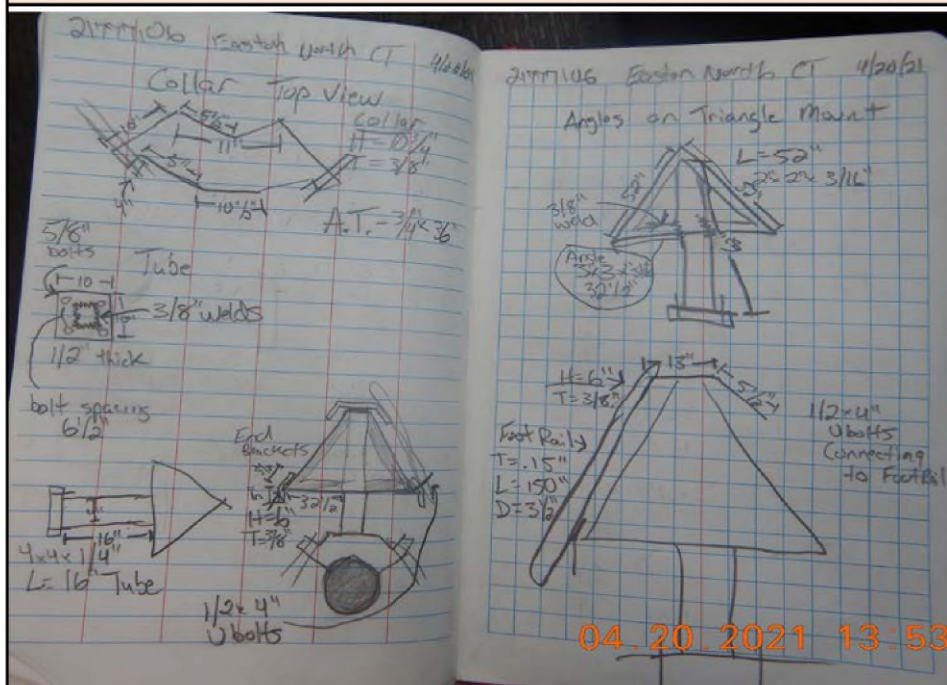 21777106 Easton North CT 4/20/21
Collar Top View
10"
5 1/2"
11"
5"
4"
10 1/2"
Collar
H = 10 3/4"
T = 3/8"
A.T. - 3/4" x 36"
5/8"
bolts
Tube
10
3/8" welds
1/2" thick
bolt spacing
6 1/2"
4"
16"
4x4x1/4"
L = 16" Tube
End
Brackets
6"
32 1/2"
H=6"
T=3/8"
1/2 x 4"
U bolts
21777106 Easton North CT 4/20/21
Angles on Triangle Mount
L = 52"
2" x 2" x 3/16"
52"
3/8"
weld
Angle
32 1/2"
H=6"
T=3/8"
13"
5 1/2"
Foot Rail
T=.15"
L=150"
D=3 1/2"
1/2 x 4"
U bolts
Connecting
to FootRail
04.20.2021 13:53